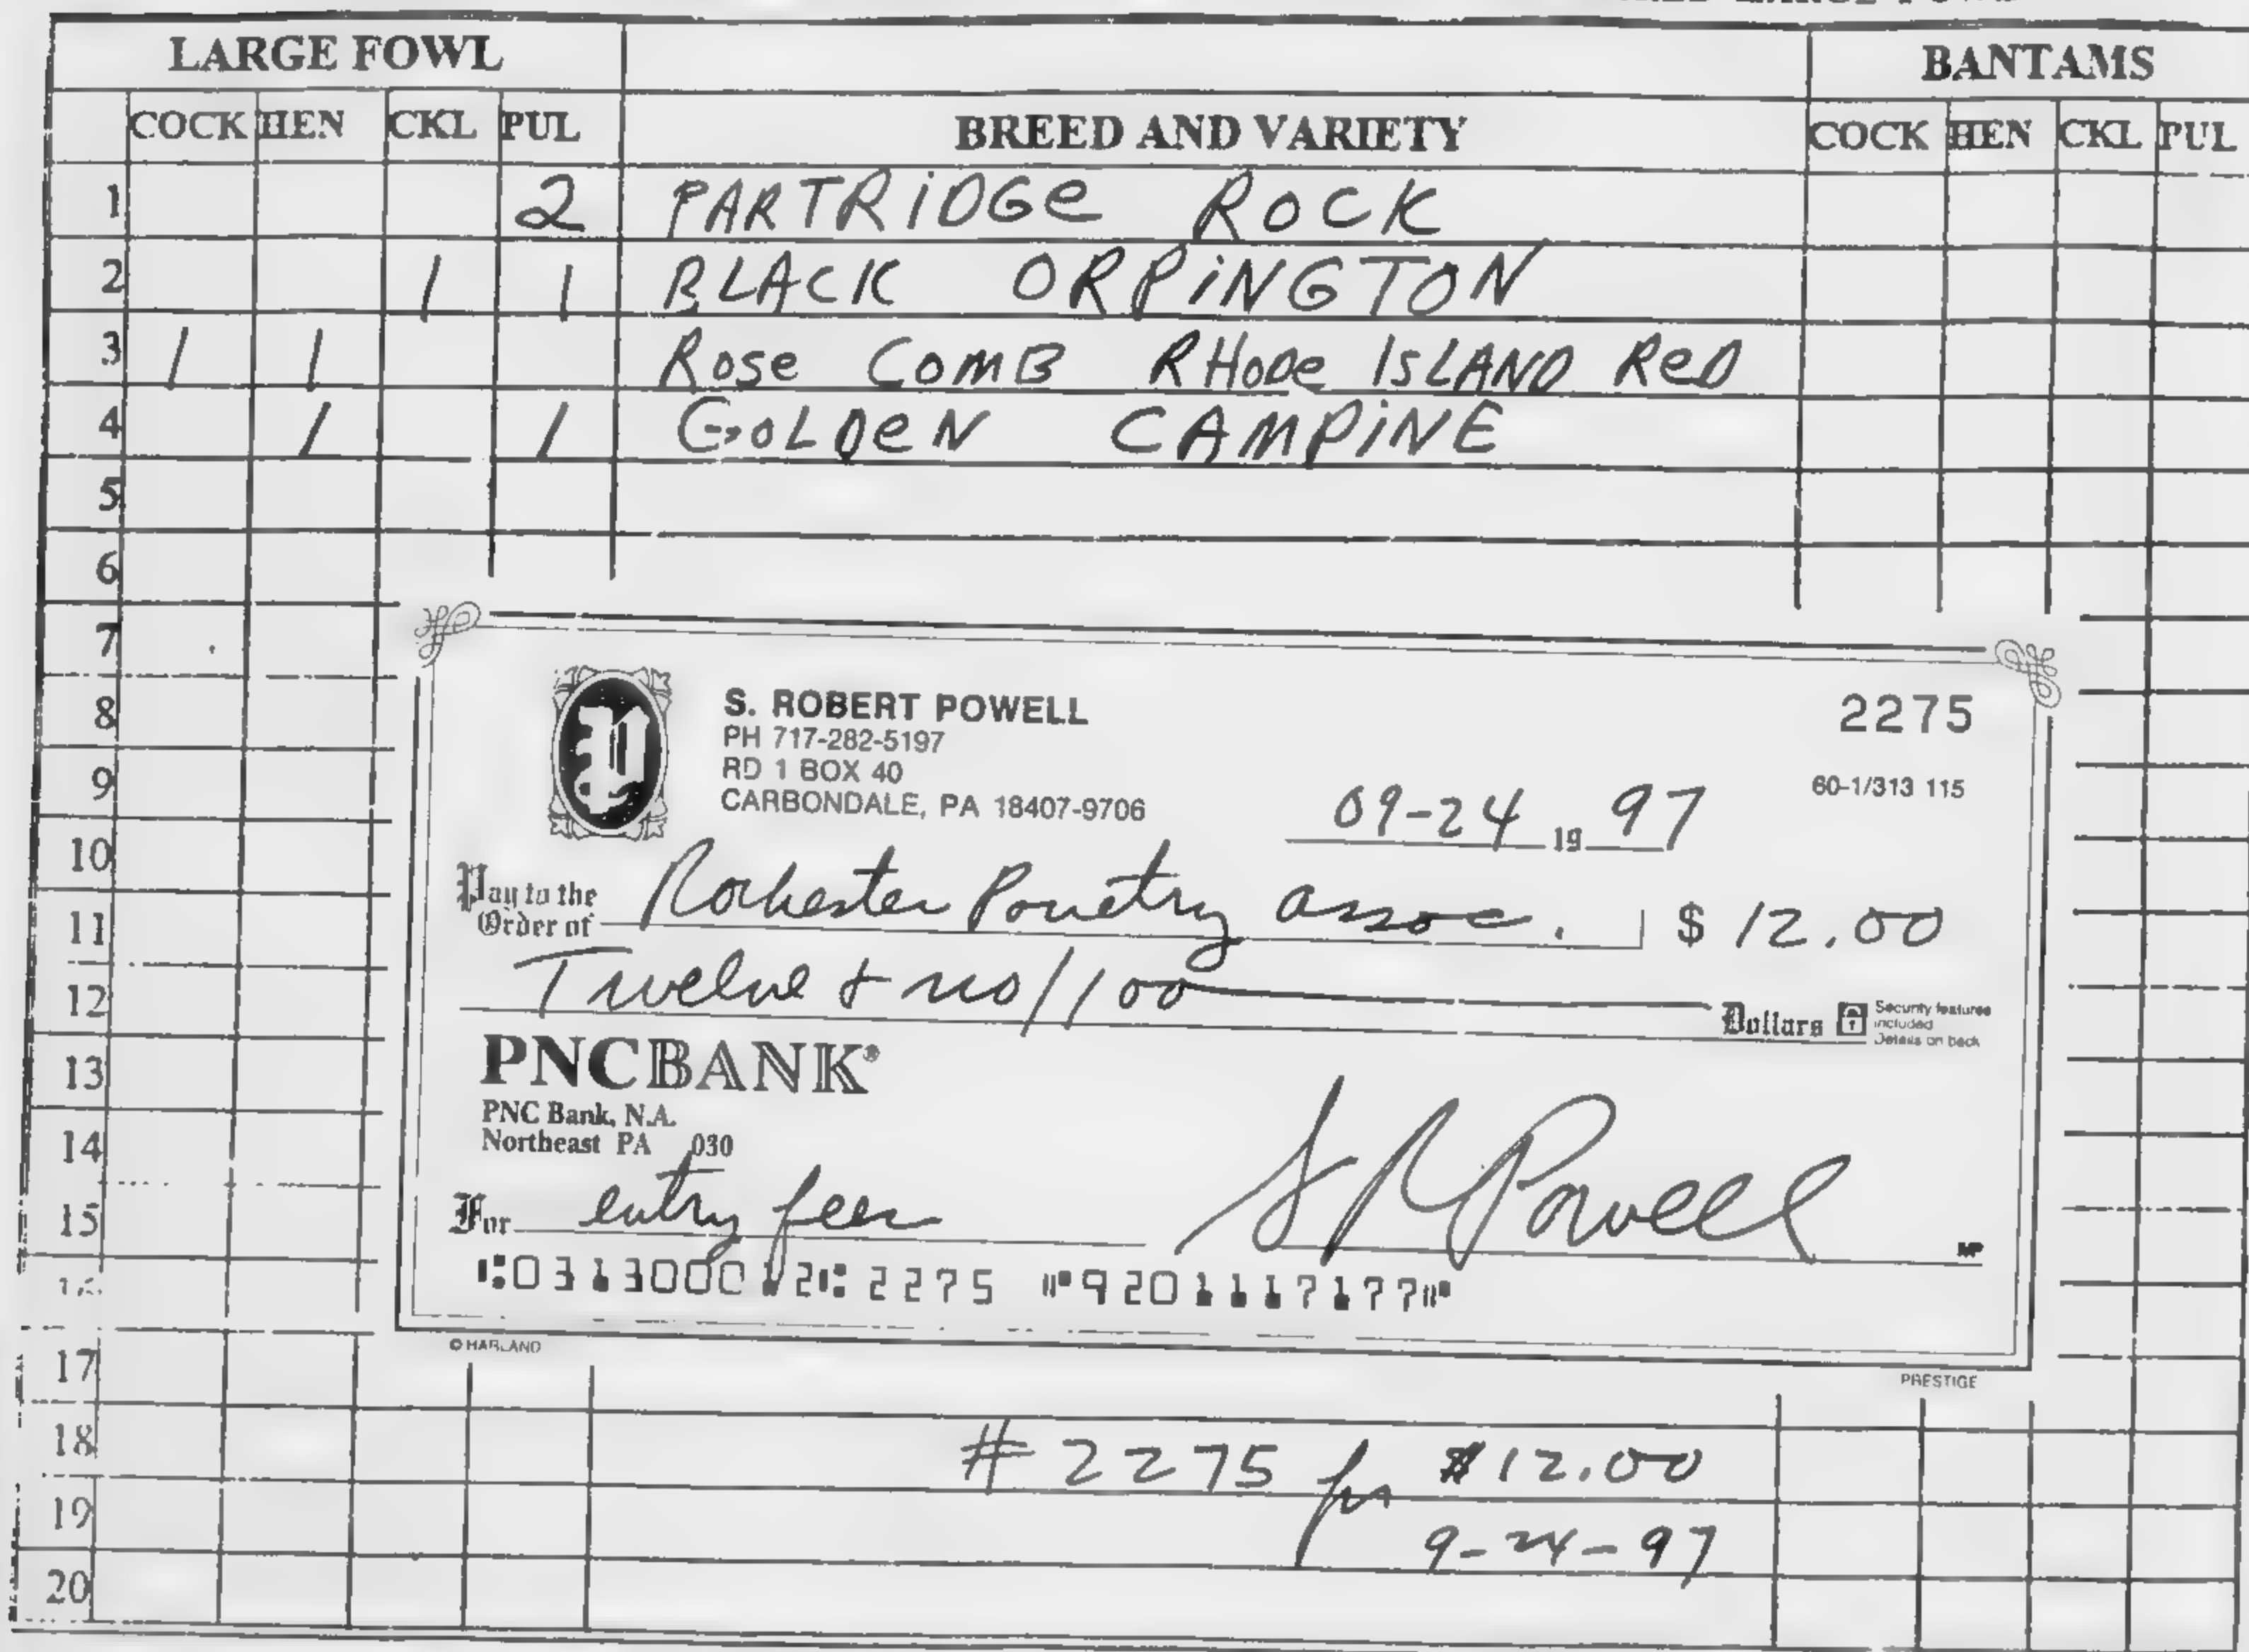 LARGE FOWL BANTAMS
COCK HEN CKL PUL BREED AND VARIETY COCK HEN CKL PUL
1 2 PARTRiDGe ROCK
2 1 1 BLACK ORPiNGTON
3 1 1 Rose COMB RHoDe ISLAND ReD
4 1 1 GoLDeN CAMPiNE
5
6
7
8
9
10
11
12
13
14
15
17
18
19
20
S. ROBERT POWELL 2275
PH 717-282-5197
RD 1 BOX 40 60-1/313 115
CARBONDALE, PA 18407-9706 09-24 19 97
Pay to the
Order of Rochester Poultry assoc. $ 12.00
Twelve & no/100 Dollars
Security features
included
Details on back
PNCBANK®
PNC Bank, N.A.
Northeast PA 030
For entry fees S R Powell MP
⑆031300012⑆ 2275 ⑈9201117177⑈
© HARLAND PRESTIGE
# 2275 for $12.00
9-24-97